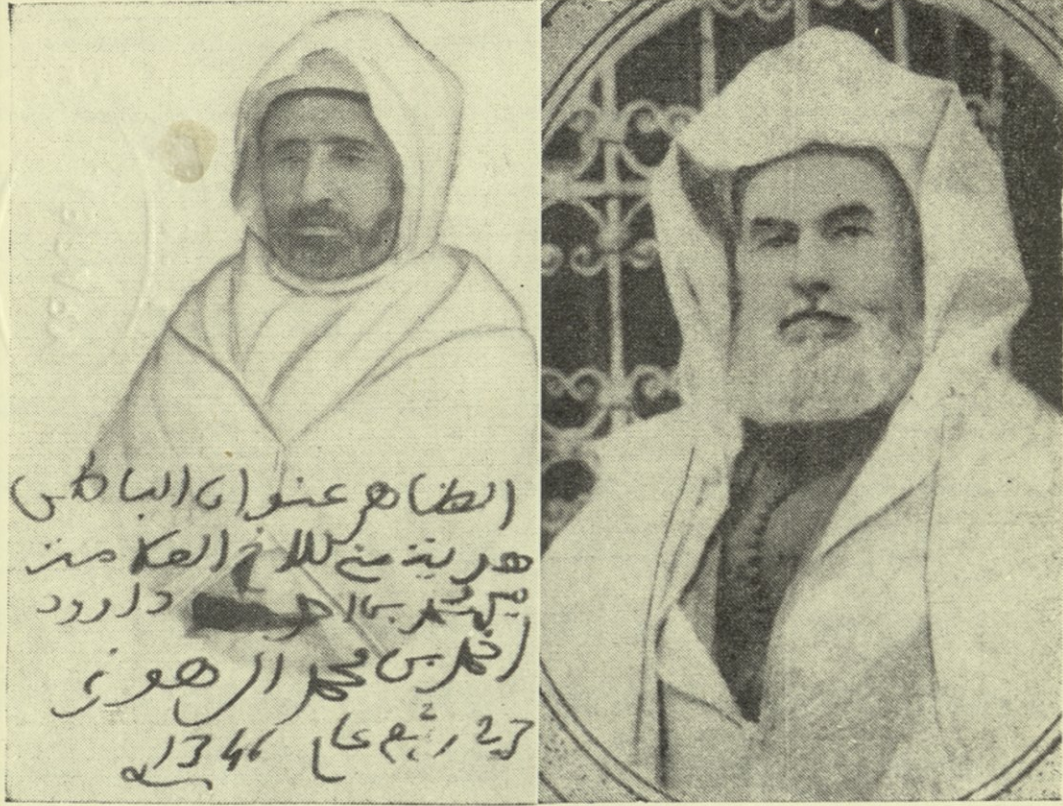 الظاهر عنوان الباطن
هدية مني للاخ العلامة
محمد بن احمد داوود
احمد بن محمد الرهوني
23 ربيع 2 عام
1346